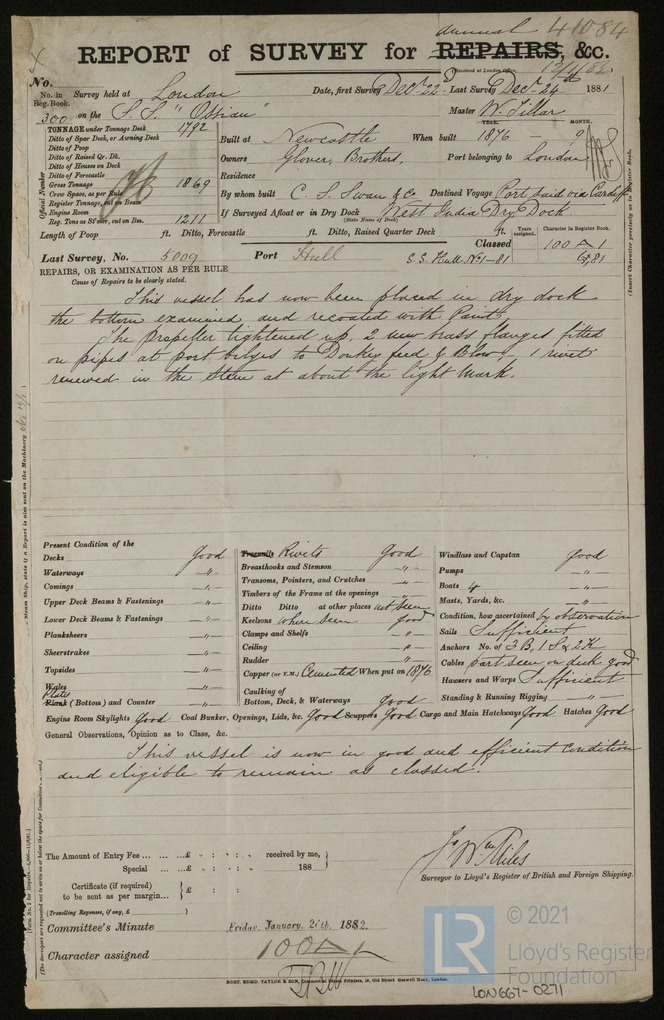 Annual 41084
REPORT of SURVEY for REPAIRS, &c.
Received at London Office,
No.
No. in Reg. Book. Survey held at London Date, first Survey Decr 22nd Last Survey Decr 24th 1881
300 on the S.S. "Ossian" Master W. Tillar
TONNAGE under Tonnage Deck 1792
Ditto of Spar Deck, or Awning Deck
Ditto of Poop
Ditto of Raised Qr. Dk.
Ditto of Houses on Deck
Ditto of Forecastle
Gross Tonnage 1869
Crew Space, as per Rule
Register Tonnage, cut on Beam
Engine Room
Reg. Tons as St'mer, cut on Bm. 1211
Official Number
YEAR. MONTH.
Built at Newcastle When built 1876 9
Owners Glover, Brothers, Port belonging to London
Residence
By whom built C. S. Swan & Co Destined Voyage Port Said via Cardiff
If Surveyed Afloat or in Dry Dock West India Dry Dock
(State Name of Dock)
Length of Poop ft. Ditto, Forecastle ft. Ditto, Raised Quarter Deck ft.
Years assigned. Character in Register Book.
Classed 100 A 1
Last Survey, No. 5009 Port Hull S.S. Hull. No 1-81 3,81
(Insert Character precisely as in Register Book.
REPAIRS, OR EXAMINATION AS PER RULE
Cause of Repairs to be clearly stated.
This vessel has now been placed in dry dock
the bottom examined and recoated with Paint,
The propeller tightened up, 2 new brass flanges fitted
on pipes at port bilges to Donkey feed & Blow, 1 rivet
renewed in the stem at about the light mark.
Steam Ship, state if a Report is also sent on the Machinery
Present Condition of the
Decks Good
Waterways -"-
Comings -"-
Upper Deck Beams & Fastenings -"-
Lower Deck Beams & Fastenings -"-
Planksheers -"-
Sheerstrakes -"-
Topsides -"-
Wales -"-
Plates
Plank (Bottom) and Counter -"-
Treenails Rivets Good
Breasthooks and Stemson -"-
Transoms, Pointers, and Crutches -"-
Timbers of the Frame at the openings -"-
Ditto Ditto at other places not seen
Keelsons where seen good
Clamps and Shelfs -"-
Ceiling -"-
Rudder -"-
Copper (or Y.M.) Cemented When put on 1876
Caulking of
Bottom, Deck, & Waterways Good
Windlass and Capstan good
Pumps -"-
Boats 4 -"-
Masts, Yards, &c. -"-
Condition, how ascertained by observation
Sails Sufficient
Anchors No. of 3 B, 1 S & 2 K
Cables part seen on deck good
Hawsers and Warps Sufficient
Standing & Running Rigging "
Engine Room Skylights Good Coal Bunker, Openings, Lids, &c. Good Scuppers Good Cargo and Main Hatchways Good Hatches Good
General Observations, Opinion as to Class, &c.
This vessel is now in good and efficient condition
and eligible to remain as classed.
The Amount of Entry Fee ... ... ...£ : : received by me,
Special ... ...£ : : 188
Certificate (if required) to be sent as per margin... £ : :
(Travelling Expenses, if any, £ )
Wm Miles
Surveyor to Lloyd's Register of British and Foreign Shipping.
Committee's Minute Friday, January 20th, 1882.
Character assigned 100 A 1
ROBT. EDMD. TAYLOR & SON, Commercial Steam Printers, 19, Old Street Goswell Road, London.
(The Surveyors are requested not to write on or below the space for Committee's Minute.)
© 2021
LR Lloyd's Register
Foundation
LON667-0271